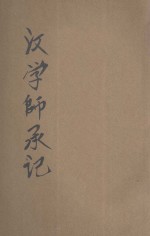 汉学師承记